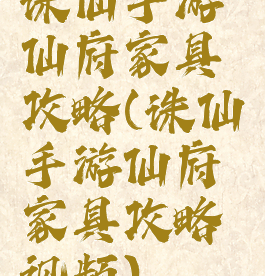 诛仙手游
仙府家具
攻略(诛仙
手游仙府
家具攻略
视频)